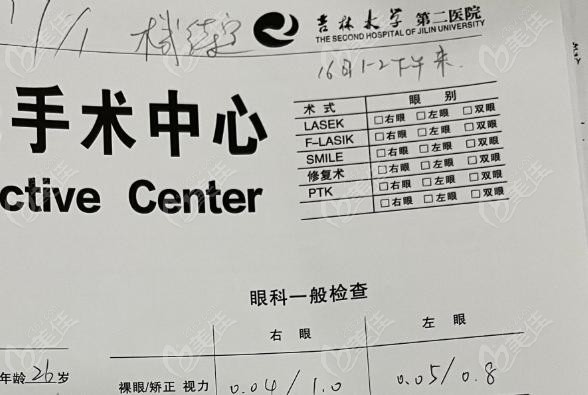 吉林大学 第二医院
THE SECOND HOSPITAL OF JILIN UNIVERSITY
16日1-2下午来.
手术中心
ctive Center
术 式 眼 别
LASEK □右眼 □左眼 □双眼
F-LASIK □右眼 □左眼 □双眼
SMILE □右眼 □左眼 □双眼
修复术 □右眼 □左眼 □双眼
PTK □右眼 □左眼 □双眼
□右眼 □左眼 □双眼
眼科一般检查
右 眼 左 眼
年龄 26 岁
裸眼/矫正 视力 0.04 / 1.0 0.05 / 0.8